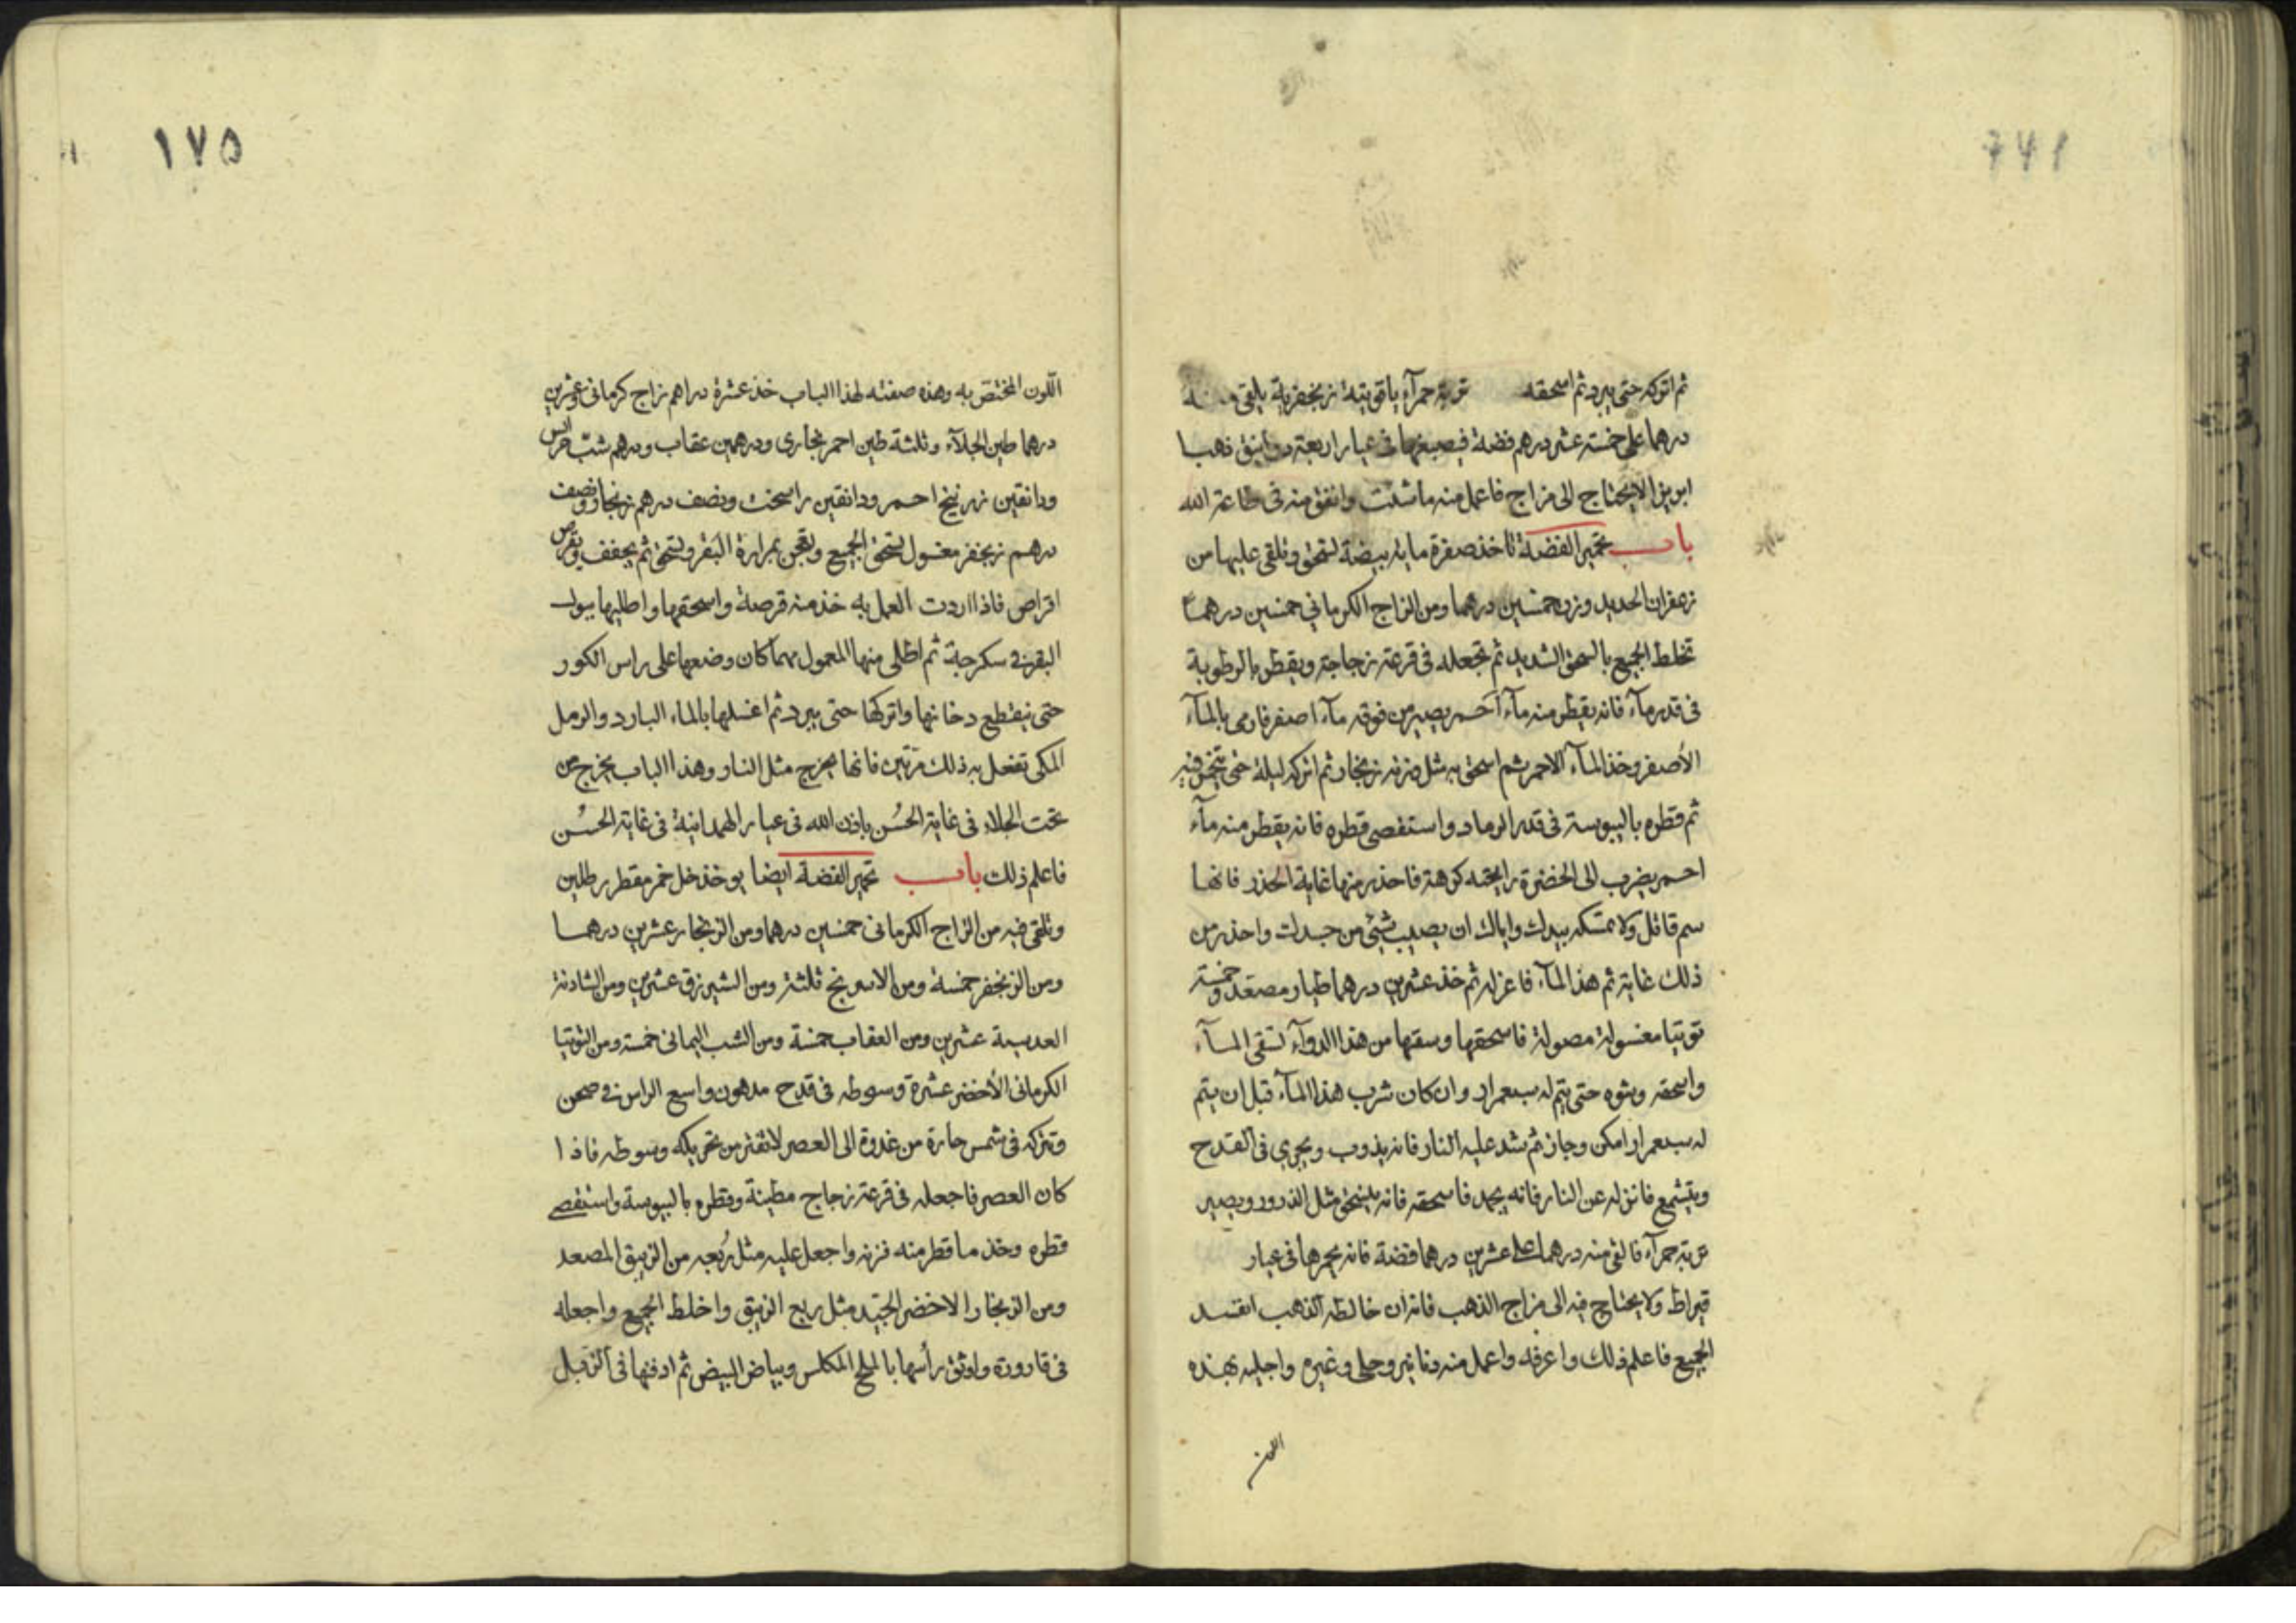 ثم اتركه حتى يبرد ثم اسحقه تربة حمرآء ياقوتية زنجفرية يلقى منه
درهما على خمسة عشر درهم فضة فيصبغها فى عيار اربعة دوانيق ذهبا
ابريزا لا يحتاج الى مزاج فاعمل منه ما شئت وانفق منه فى طاعة الله
باب تحمير الفضة تاخذ صفرة ماية بيضة تسحق وتلقى عليها من
زعفران الحديد وزن خمسين درهما ومن الزاج الكرمانى خمسين درهما
تخلط الجميع بالسحق الشديد ثم تجعله فى قرعة زجاجة ويقطر بالرطوبة
فى قدر مآء فانه يقطر منه مآء احمر يصير من فوقه مآء اصفر فارمى بالمآء
الأصفر وخذ المآء الاحمر ثم اسحق به مثل وزنه زنجار ثم اتركه ليلة حتى يتخمر فيه
ثم قطره باليبوسة فى قدر الرماد واستقصى قطره فانه يقطر منه مآء
احمر يضرب الى الخضرة رايحته كرهة فاحذر منها غاية الحذر فانها
سم قاتل ولا تمسكه بيدك واياك ان يصيب شيئ من جسدك واحذر من
ذلك غاية ثم هذا المآء فاعزله ثم خذ عشرين درهما طيار مصعّد وخمسة
توتيا مغسولة مصولة فاسحقها وسقها من هذا الدوآء تسقى المآء
واسحقه وشوه حتى يتم له سبع مرار وان كان شرب هذا المآء قبل ان يتم
له سبع مرار امكن وجاز ثم شد عليه النار فانه يذوب ويجري فى القدح
ويتشمع فانزله عن النار فانه يجمد فاسحقه فانه ينسحق مثل الذرور ويصير
تربة حمرآء فالق منه درهما على عشرين درهما فضة فانه يحمرها فى عيار
قيراط ولا يحتاج فيه الى مزاج الذهب فانه ان خالطه الذهب افسد
الجميع فاعلم ذلك واعرفه واعمل منه دنانير وحلى وغيره واجليه بهذه
اللون
١٧٥
اللون المختص به وهذه صفته لهذا الباب خذ عشرة دراهم زاج كرمانى وعشرين
درهما طين الجلآء وثلثة طين احمر بخارى ودرهمين عقاب ودرهم شبّ
ودانقين زرنيخ احمر ودانقين راسخت ونصف درهم زنجار ونصف
درهم زنجفر مغسول تسحق الجميع وتعجن بمرارة البقر وتسحق ثم يجفف ويقرص
اقراص فاذا اردت العمل به خذ منه قرصة واسحقها واطليها ببول
البقر فى سكرجة ثم اطلى منها المعمول مهما كان وضعها على راس الكور
حتى ينقطع دخانها واتركها حتى يبرد ثم اغسلها بالماء البارد والرمل
المكى تفعل به ذلك مرّتين فانها يخرج مثل النار وهذا الباب يخرج من
تحت الجلاء فى غاية الحُسن باذن الله فى عيار الهمدانية فى غاية الحسُن
فاعلم ذلك باب تحمير الفضة ايضا يوخذ خل خمر مقطر رطلين
وتلقى فيه من الزاج الكرمانى خمسين درهما ومن الزنجار عشرين درهما
ومن الزنجفر خمسة ومن الاسرنج ثلثة ومن الشيرزق عشرين ومن الشادنة
العدسية عشرين ومن العقاب خمسة ومن الشب اليمانى خمسة ومن التوتيا
الكرمانى الأخضر عشرة وسوطه فى قدح مدهون واسع الراس فى صحن
وتتركه فى شمس حارة من غدوة الى العصر لا تفتر من تحريكه وسوطه فاذا
كان العصر فاجعله فى قرعة زجاج مطينة وقطره باليبوسة واستقصى
قطره وخذ ما قطر منه فزنه واجعل عليه مثل رُبعه من الزيبق المصعد
ومن الزنجار الاخضر الجيّد مثل ربع الزيبق واخلط الجميع واجعله
فى قارورة واوثق رأسها بالملح المكلس وبياض البيض ثم ادفنها فى الزّبل